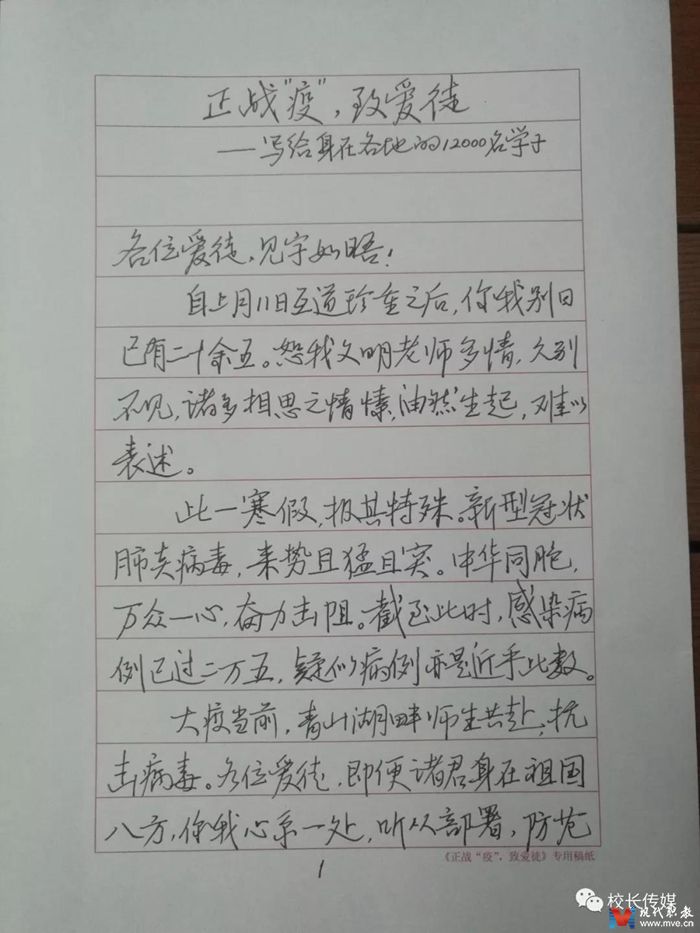 正战"疫"，致爱徒
——写给身在各地的12000名学子
各位爱徒，见字如晤！
自上月11日互道珍重之后，你我别日
已有二十余五。恕我文明老师多情，久别
不见，诸多相思之情愫，油然生起，难以
表述。
此一寒假，极其特殊。新型冠状
肺炎病毒，来势且猛且突。中华同胞，
万众一心，奋力击阻。截至此时，感染病
例已过二万五，疑似病例亦是近乎此数。
大疫当前，青山湖畔师生共赴，抗
击病毒。各位爱徒，即便诸君身在祖国
八方，你我心系一处，听从部署，防范
《正战"疫"，致爱徒》专用稿纸
1
校长传媒
现代职教
www.mve.cn